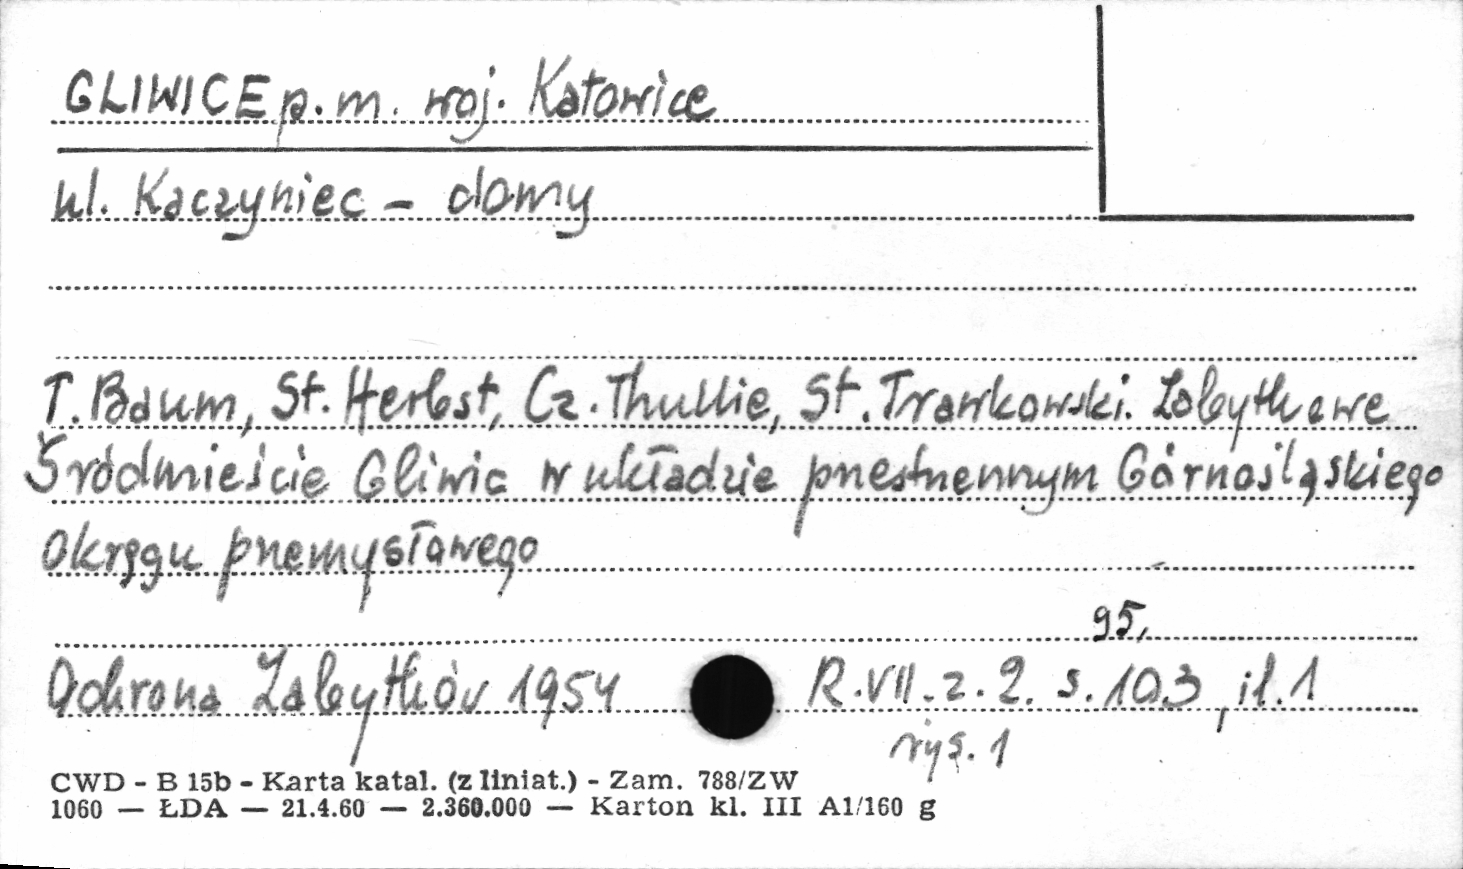 GLIWICE p.m. woj. Katowice
ul. Kaczyniec - domy
T. Baum, St. Herbst, Cz. Thullie, St. Trawkowski. Zabytkowe
Śródmieście Gliwic w układzie przestrzennym Górnośląskiego
Okręgu przemysłowego
95,
Ochrona Zabytków 1954 R.VII. z. 2. s. 103, il. 1
rys. 1
CWD - B 15b - Karta katal. (z liniat.) - Zam. 788/ZW
1060 — ŁDA — 21.4.60 — 2.360.000 — Karton kl. III A1/160 g